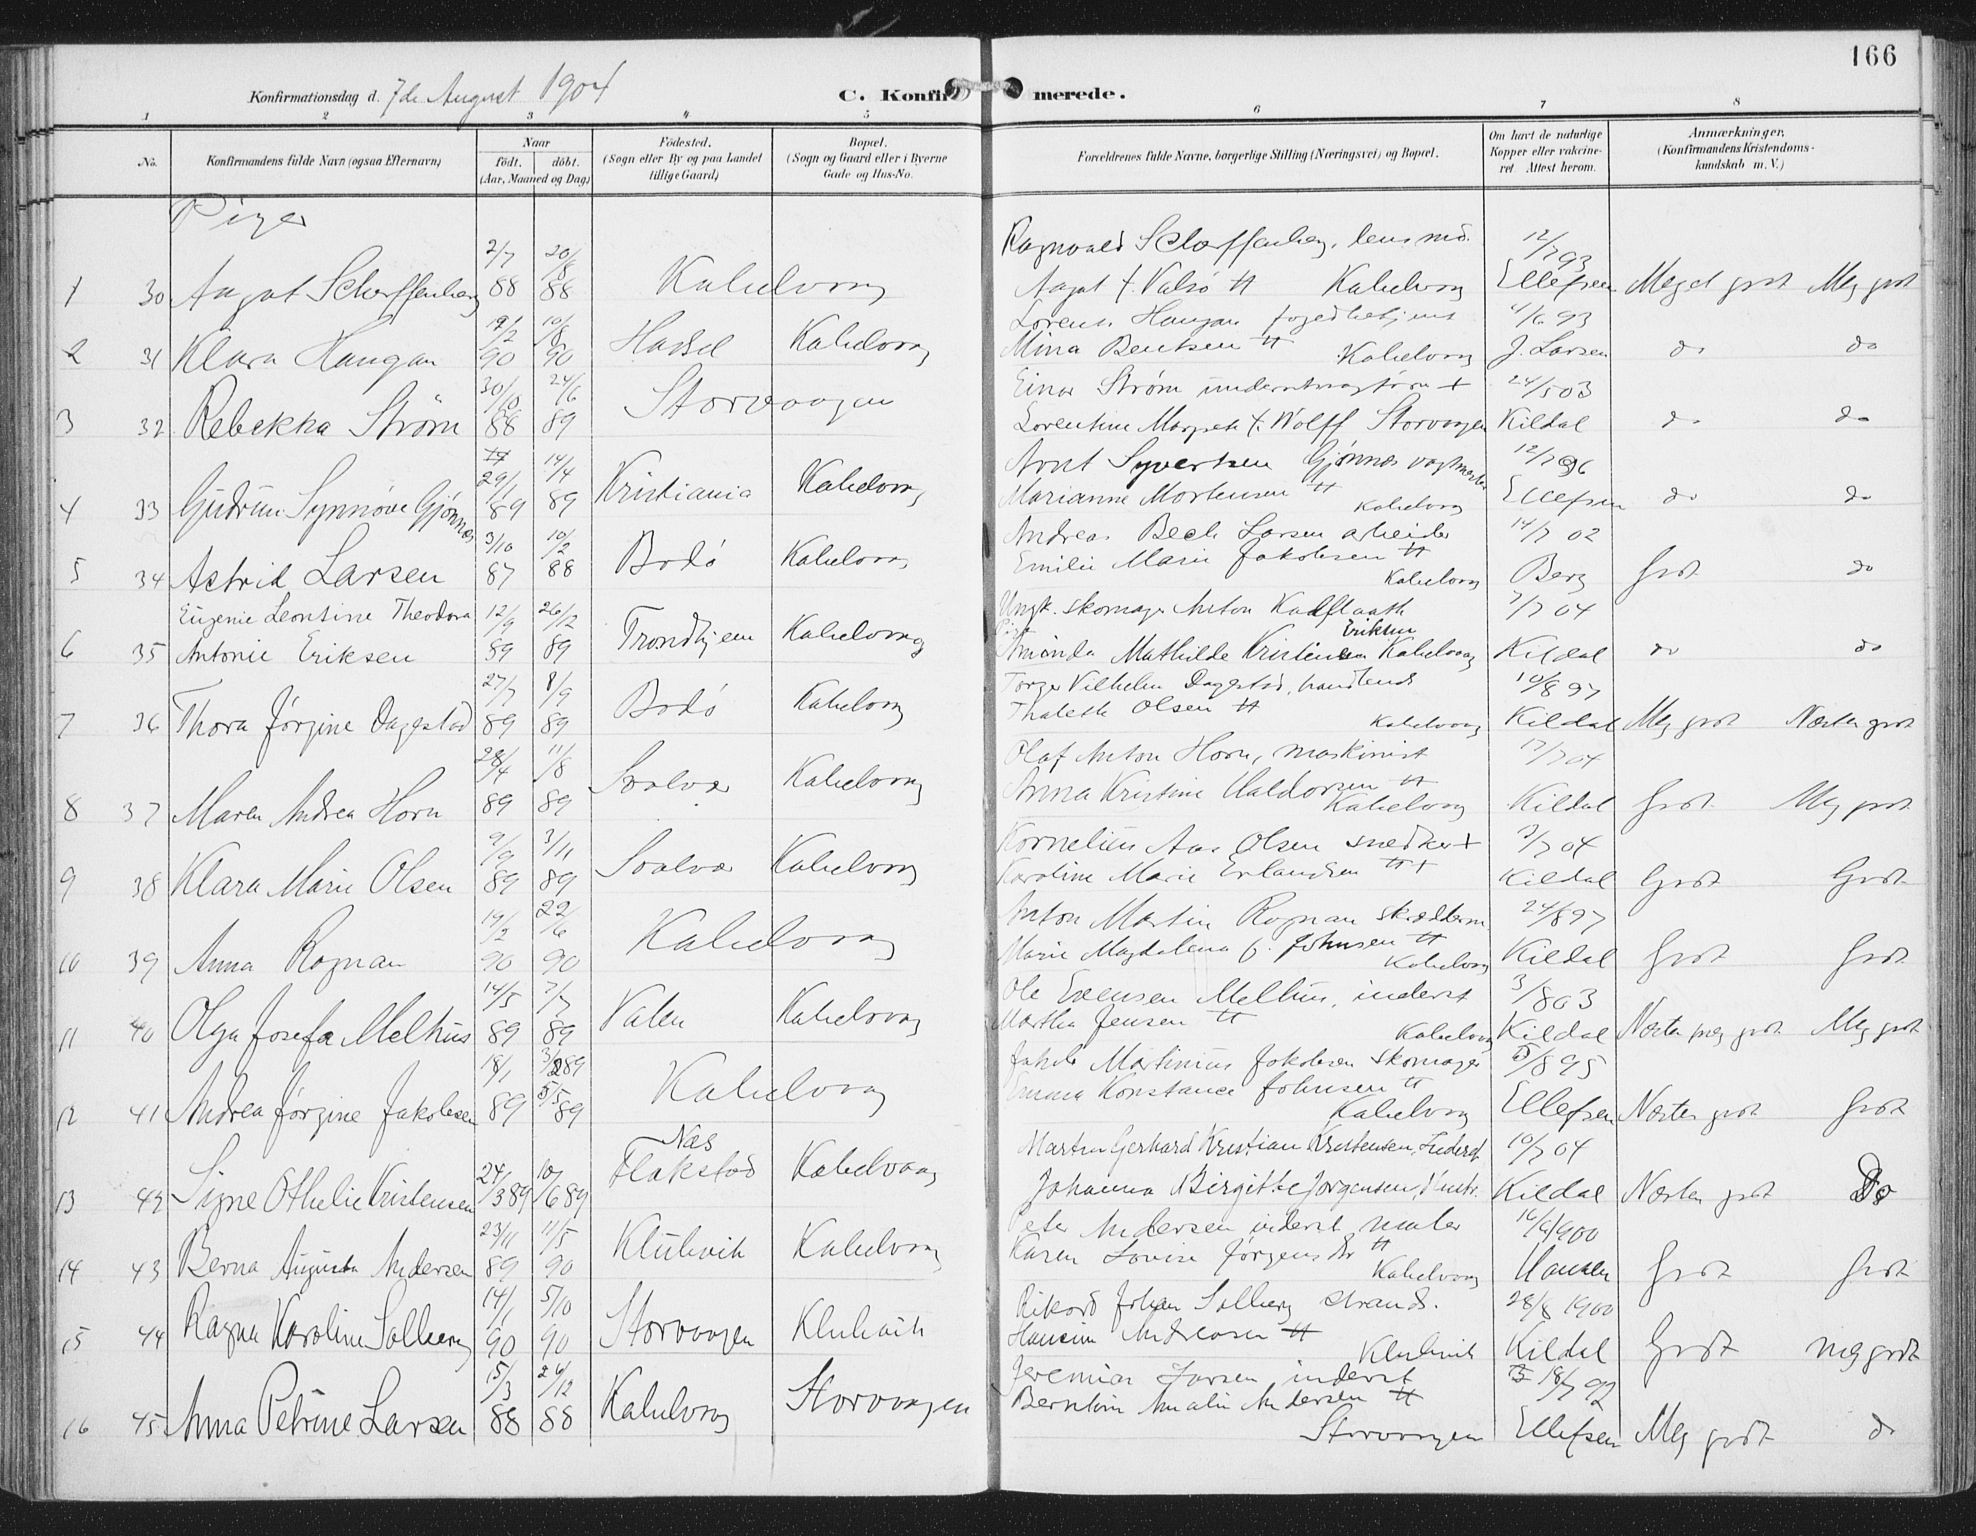 166
Konfirmationsdag d. 7de August 1904
C. Konfir merede.
1 2 3 4 5 6 7 8
No.
Konfirmandens fulde Navn (ogsaa Efternavn)
Naar
födt. döbt.
(Aar, Maaned og Dag)
Födested.
(Sogn eller By og paa Landet
tillige Gaard)
Bopæl.
(Sogn og Gaard eller i Byerne
Gade og Hus-No.
Forældrenes fulde Navne, borgerlige Stilling (Næringsvei) og Bopæl.
Om havt de naturlige
Kopper eller vakcine-
ret Attest herom.
Anmærkninger,
(Konfirmandens Kristendoms-
kundskab m. V.)
Piger
2/7 20/8 Ragnvald Scharffenberg, lensmd. 12/7 93
1 30 Aagot Scharffenberg 88 88 Kabelvaag Aagot f. Valsø Kabelvaag Ellefsen Meget godt Meg godt
19/2 10/8 Lorents Haugan fogedbetjent 4/6 93
2 31 Klara Haugan 90 90 Hadsel Kabelvaag Mina Bentsen Kabelvaag J. Larsen do do
30/10 24/6 Einar Strøm + 24/5 03
3 32 Rebekka Strøm 88 89 Storvaagen Lorentine Margrete f. Wolff Storvaagen Kildal do do
29/1 14/4 Arnt Syvertsen Gjønnes vagtmester 12/7 96
4 33 Gudrun Synnøve Gjønnes 89 89 Kristiania Kabelvaag Marianne Mortensen Kabelvaag Ellefsen do do
3/10 10/2 Andreas Bech Larsen arbeider 14/7 02
5 34 Astrid Larsen 87 88 Bodø Kabelvaag Emilie Marie Jakobsen Kabelvaag Berg Godt do
Eugenie Leontine Theodora 12/9 26/12 Ungk. skomager Anton 7/7 04
Eriksen
6 35 Antonie Eriksen 89 89 Trondhjem Kabelvaag Aminda Mathilde Kristensen Kabelvaag Kildal do do
27/7 8/9 Torger Vilhelm Dagestad, handlende 10/8 97
7 36 Thora Jørgine Dagestad 89 89 Bodø Kabelvaag Thalette Olsen Kabelvaag Kildal Meg godt Næsten godt
28/4 11/8 Olaf Anton Horn, maskinist 17/7 04
8 37 Maren Andrea Horn 89 89 Svolvær Kabelvaag Anna Kristine Haldorsen Kabelvaag Kildal Godt Meg godt
9/9 3/11 Kornelius Aas Olsen snedker + 7/7 04
9 38 Klara Marie Olsen 89 89 Svolvær Kabelvaag Karoline Marie Erlandsen + Kildal Godt Godt
19/2 22/6 Anton Martin Rognan skrædderm 24/8 97
10 39 Anna Rognan 90 90 Kabelvaag Marie Magdalena f. Johnsen Kabelvaag Kildal Godt Godt
14/5 7/7 Ole Evensen Melhus, inderst 3/8 03
11 40 Olga Josefa Melhus 89 89 Valen Kabelvaag Martha Jensen Kabelvaag Kildal Næsten meg godt Meg godt
18/1 3/2 89 Jakob Martinius Jakobsen skomager 5/8 95
12 41 Andrea Jørgine Jakobsen 89 5/5 89 Kabelvaag Emma Konstance Johnsen Kabelvaag Ellefsen Næsten godt Godt
Næs Martin Gerhard Kristian Kristensen, Inderst 10/7 04
13 42 Signe Othelie Kristensen 24/3 89 10/6 89 Flakstad Kabelvaag Johanna Birgitte Jørgensen, Kildal Næsten godt Do
23/11 11/5 Peter Andersen inderst, maler 16/6 1900
14 43 Berna Augusta Andersen 89 90 Klubvik Kabelvaag Karen Lovise Jørgensdr Kabelvaag Hansen Godt Godt
14/1 5/10 Rikard Johan Solberg strands. 28/8 1900
15 44 Ragna Karoline Solberg 90 90 Storvaagen Klubvik Andreasen Klubvik Kildal Godt meg godt
15/3 26/12 Jeremias Larsen inderst 18/7 92
16 45 Anna Petrine Larsen 88 88 Kabelvaag Storvaagen Berntine Amalie Andersen Storvaagen Ellefsen Meg godt do